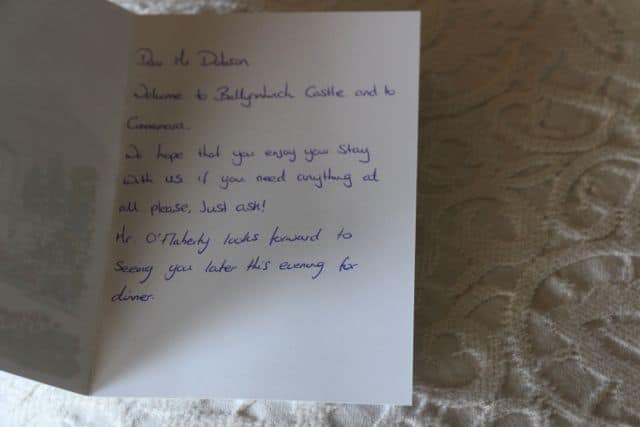 Dear Mr Dobson
Welcome to Ballynahinch Castle and to
Connemara.
We hope that you enjoy your Stay
with us if you need anything at
all please, Just ask!
Mr. O'Flaherty looks forward to
Seeing you later this evening for
dinner.